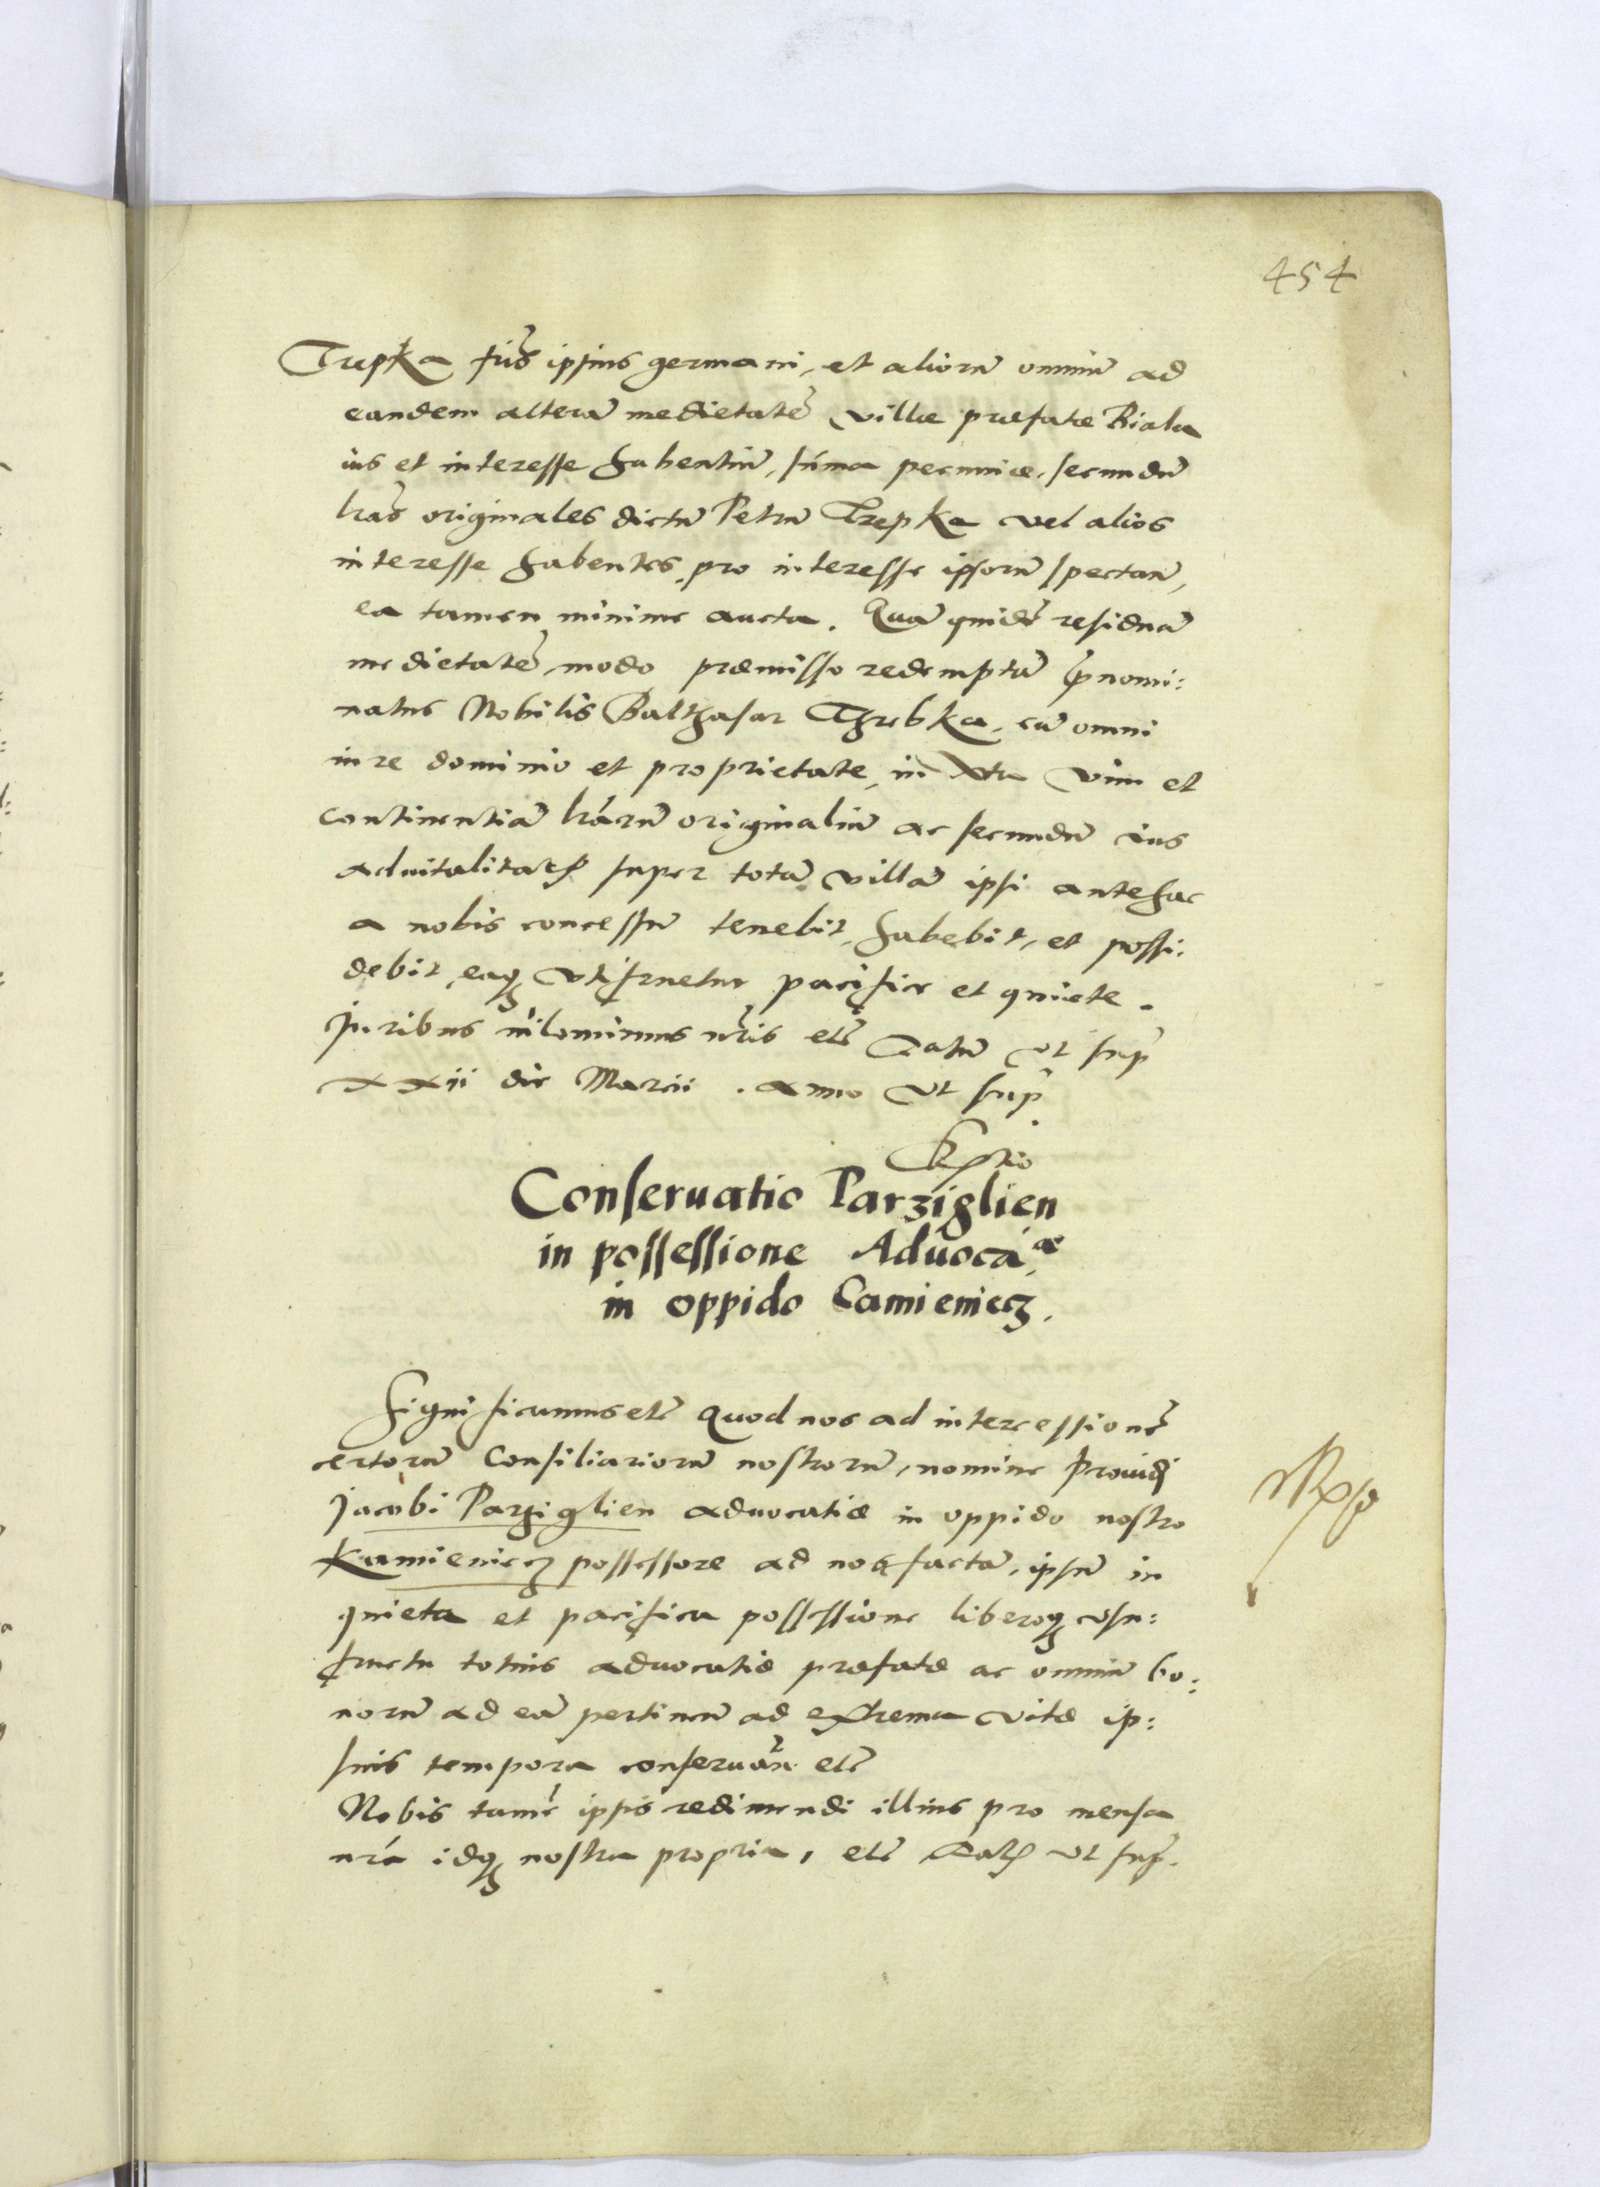 454
Trepka frīs ipsius germani, et aliorū omniū ad
eandem alterā medietatē villæ præfatæ Biala
ius et interesse habentiū, sūma pecuniæ, secundū
lrās originales dictū Petrū Trzepka vel alios
interesse habentes, pro interesse ipsorū spectan,
ea tamen minime aucta. Quā quidē residuā
medietatē, modo præmisso redemptā p̄nomi:
natus Nobilis Balthasar Thrzebka, cū omni
iure dominio et proprietate, in vim et
continentiā lrārū originaliū ac secundū ius
aduitalitatis super totā villā ipsi antehac
a nobis concessū tenebit, habebit, et possi:
debit, eaq utifruetur pacifice et quiete.
Juribus nilominus nr̄is etc̄ Datū ut sup̄
xxii die Marcii . anno ut sup̄
Conseruatio Parziglien
in possessione Aduocāæ
in oppido Camieniecz.
Significamus etc̄ Quod nos ad intercessionē
certorū Consiliariorū nostrorū, nomine Prouidi
Jacobi Parziglien aduocatiæ in oppido nostro
Kamieniecz possessore ad nos factā, ipsū in
quieta et pacifica possessione liberoq usu:
fructu totius aduocatiæ præfatæ ac omniū bo:
norū ad eā pertinen ad extrema vitæ ip:
sius tempora conseruan̄. etc̄
Nobis tamē ipsis redimendi illius pro mensa
nr̄a idq nostra propria, etc̄ Datū ut sup̄.